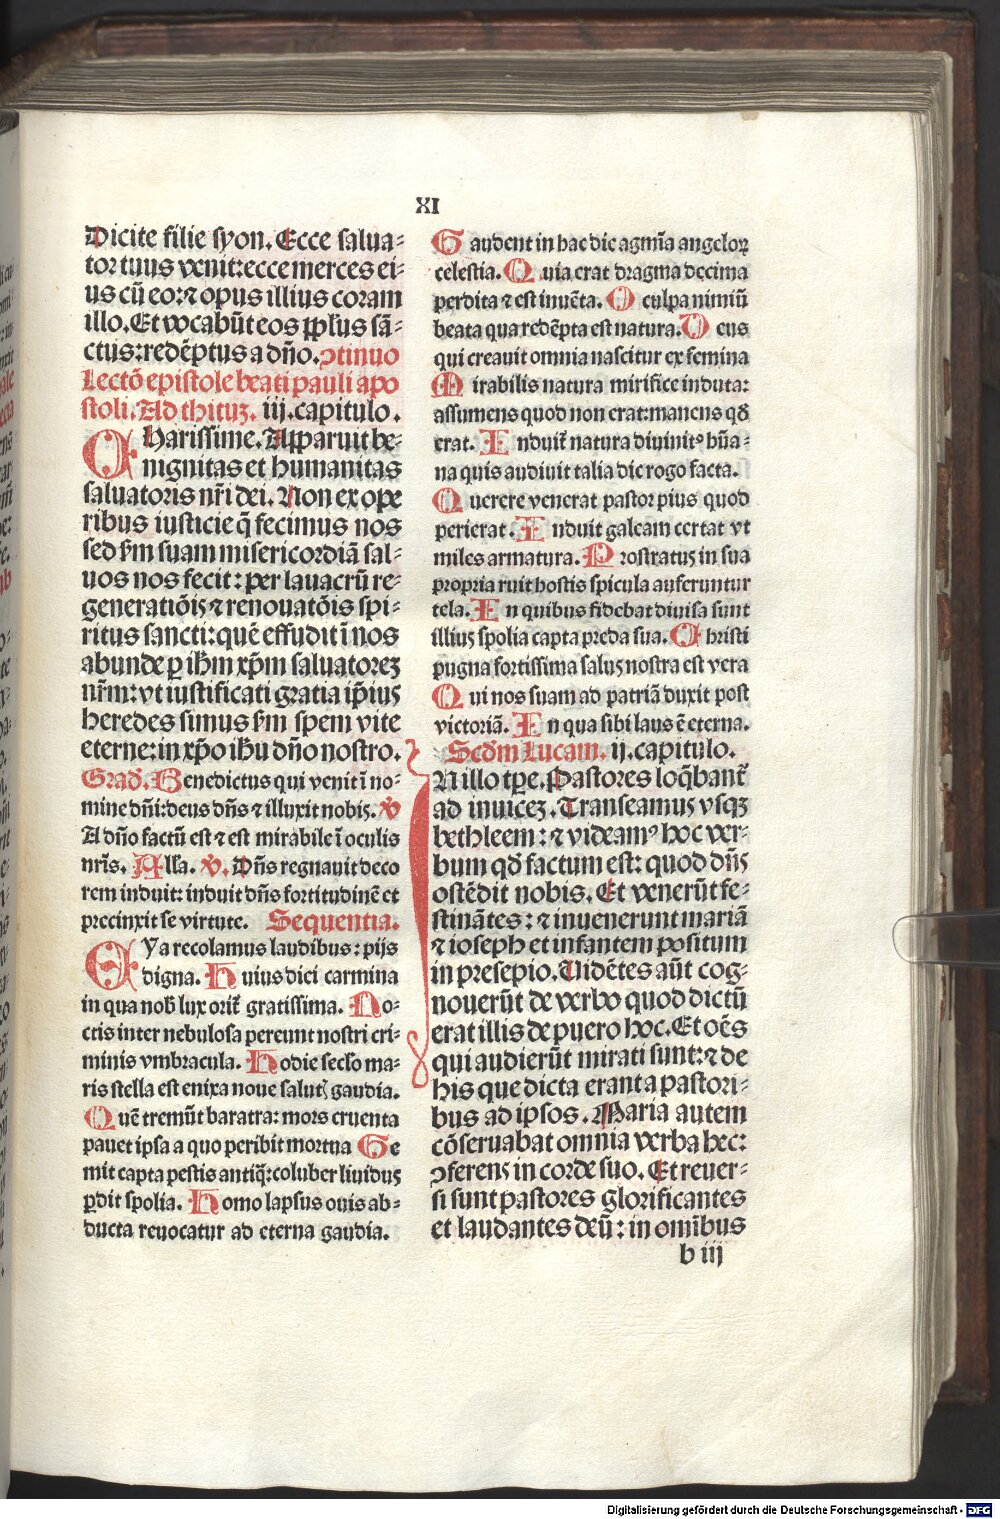 XI
Dicite filie syon. Ecce salua⸗
tor tuus venit: ecce merces ei⸗
us cū eo: ⁊ opus illius coram
illo. Et vocabūt eos pplus sā⸗
ctus: redēptus a dño. ꝯtinuo
Lectō epistole beati pauli apo
stoli. Ad thituꝫ. iij. capitulo.
Charissime. Apparuit be⸗
nignitas et humanitas
saluatoris nr̄i dei. Non ex ope
ribus iusticie q̄ fecimus nos
sed sm̄ suam misericordiā sal⸗
uos nos fecit: per lauacrū re⸗
generatiōis ⁊ renouatōis spi⸗
ritus sancti: quē effudit ī nos
abunde ꝑ ihm̄ xp̄m saluatoreꝫ
nr̄m: vt iustificati gratia ip̄ius
heredes simus sm̄ spem vite
eterne: in xp̄o ihū dño nostro.
Grad. Benedictus qui venit ī no⸗
mine dñi: deus dñs ⁊ illuxit nobis. ℣
A dño factū est ⁊ est mirabile ī oculis
nr̄is. Alla. ℣. Dñs regnauit deco
rem induit: induit dñs fortitudinē et
precinxit se virtute. Sequentia.
Eya recolamus laudibus: pijs
digna. Huius diei carmina
in qua nob̄ lux orit̄ gratissima. No⸗
ctis inter nebulosa pereunt nostri cri⸗
minis vmbracula. Hodie seclo ma⸗
ris stella est enixa noue salutꝭ gaudia.
Quē tremūt baratra: mors cruenta
pauet ipsa a quo peribit mortua Ge
mit capta pestis antiq̄: coluber liuidus
ꝑdit spolia. Homo lapsus ouis ab⸗
ducta reuocatur ad eterna gaudia.
Gaudent in hac die agmīa angeloꝝ
celestia. Quia erat dragma decima
perdita ⁊ est inuēta. O culpa nimiū
beata qua redēpta est natura. Deus
qui creauit omnia nascitur ex femina
Mirabilis natura mirifice induta:
assumens quod non erat: manens qd̄
erat. Induit̄ natura diuinitꝰ hūa⸗
na quis audiuit talia dic rogo facta.
Querere venerat pastor pius quod
perierat. Induit galeam certat vt
miles armatura. Prostratus in sua
propria ruit hostis spicula auferuntur
tela. In quibus fidebat diuisa sunt
illius spolia capta preda sua. Christi
pugna fortissima salus nostra est vera
Qui nos suam ad patriā duxit post
victoriā. In qua sibi laus ē eterna.
Scdm̄ Lucam. ij. capitulo.
IN illo tꝑe. Pastores loq̄bant̄
ad inuiceꝫ. Transeamus vsqꝫ
bethleem: ⁊ videamꝰ hoc ver⸗
bum qd̄ factum est: quod dñs
ostēdit nobis. Et venerūt fe⸗
stināntes: ⁊ inuenerunt mariā
⁊ ioseph et infantem positum
in presepio. Uidētes aūt cog⸗
nouerūt de verbo quod dictū
erat illis de puero hoc. Et oēs
qui audierūt mirati sunt: ⁊ de
his que dicta erant a pastori⸗
bus ad ipsos. Maria autem
cōseruabat omnia verba hec:
ꝯferens in corde suo. Et reuer⸗
si sunt pastores glorificantes
et laudantes deū: in omībus
b iij
Digitalisierung gefördert durch die Deutsche Forschungsgemeinschaft - DFG